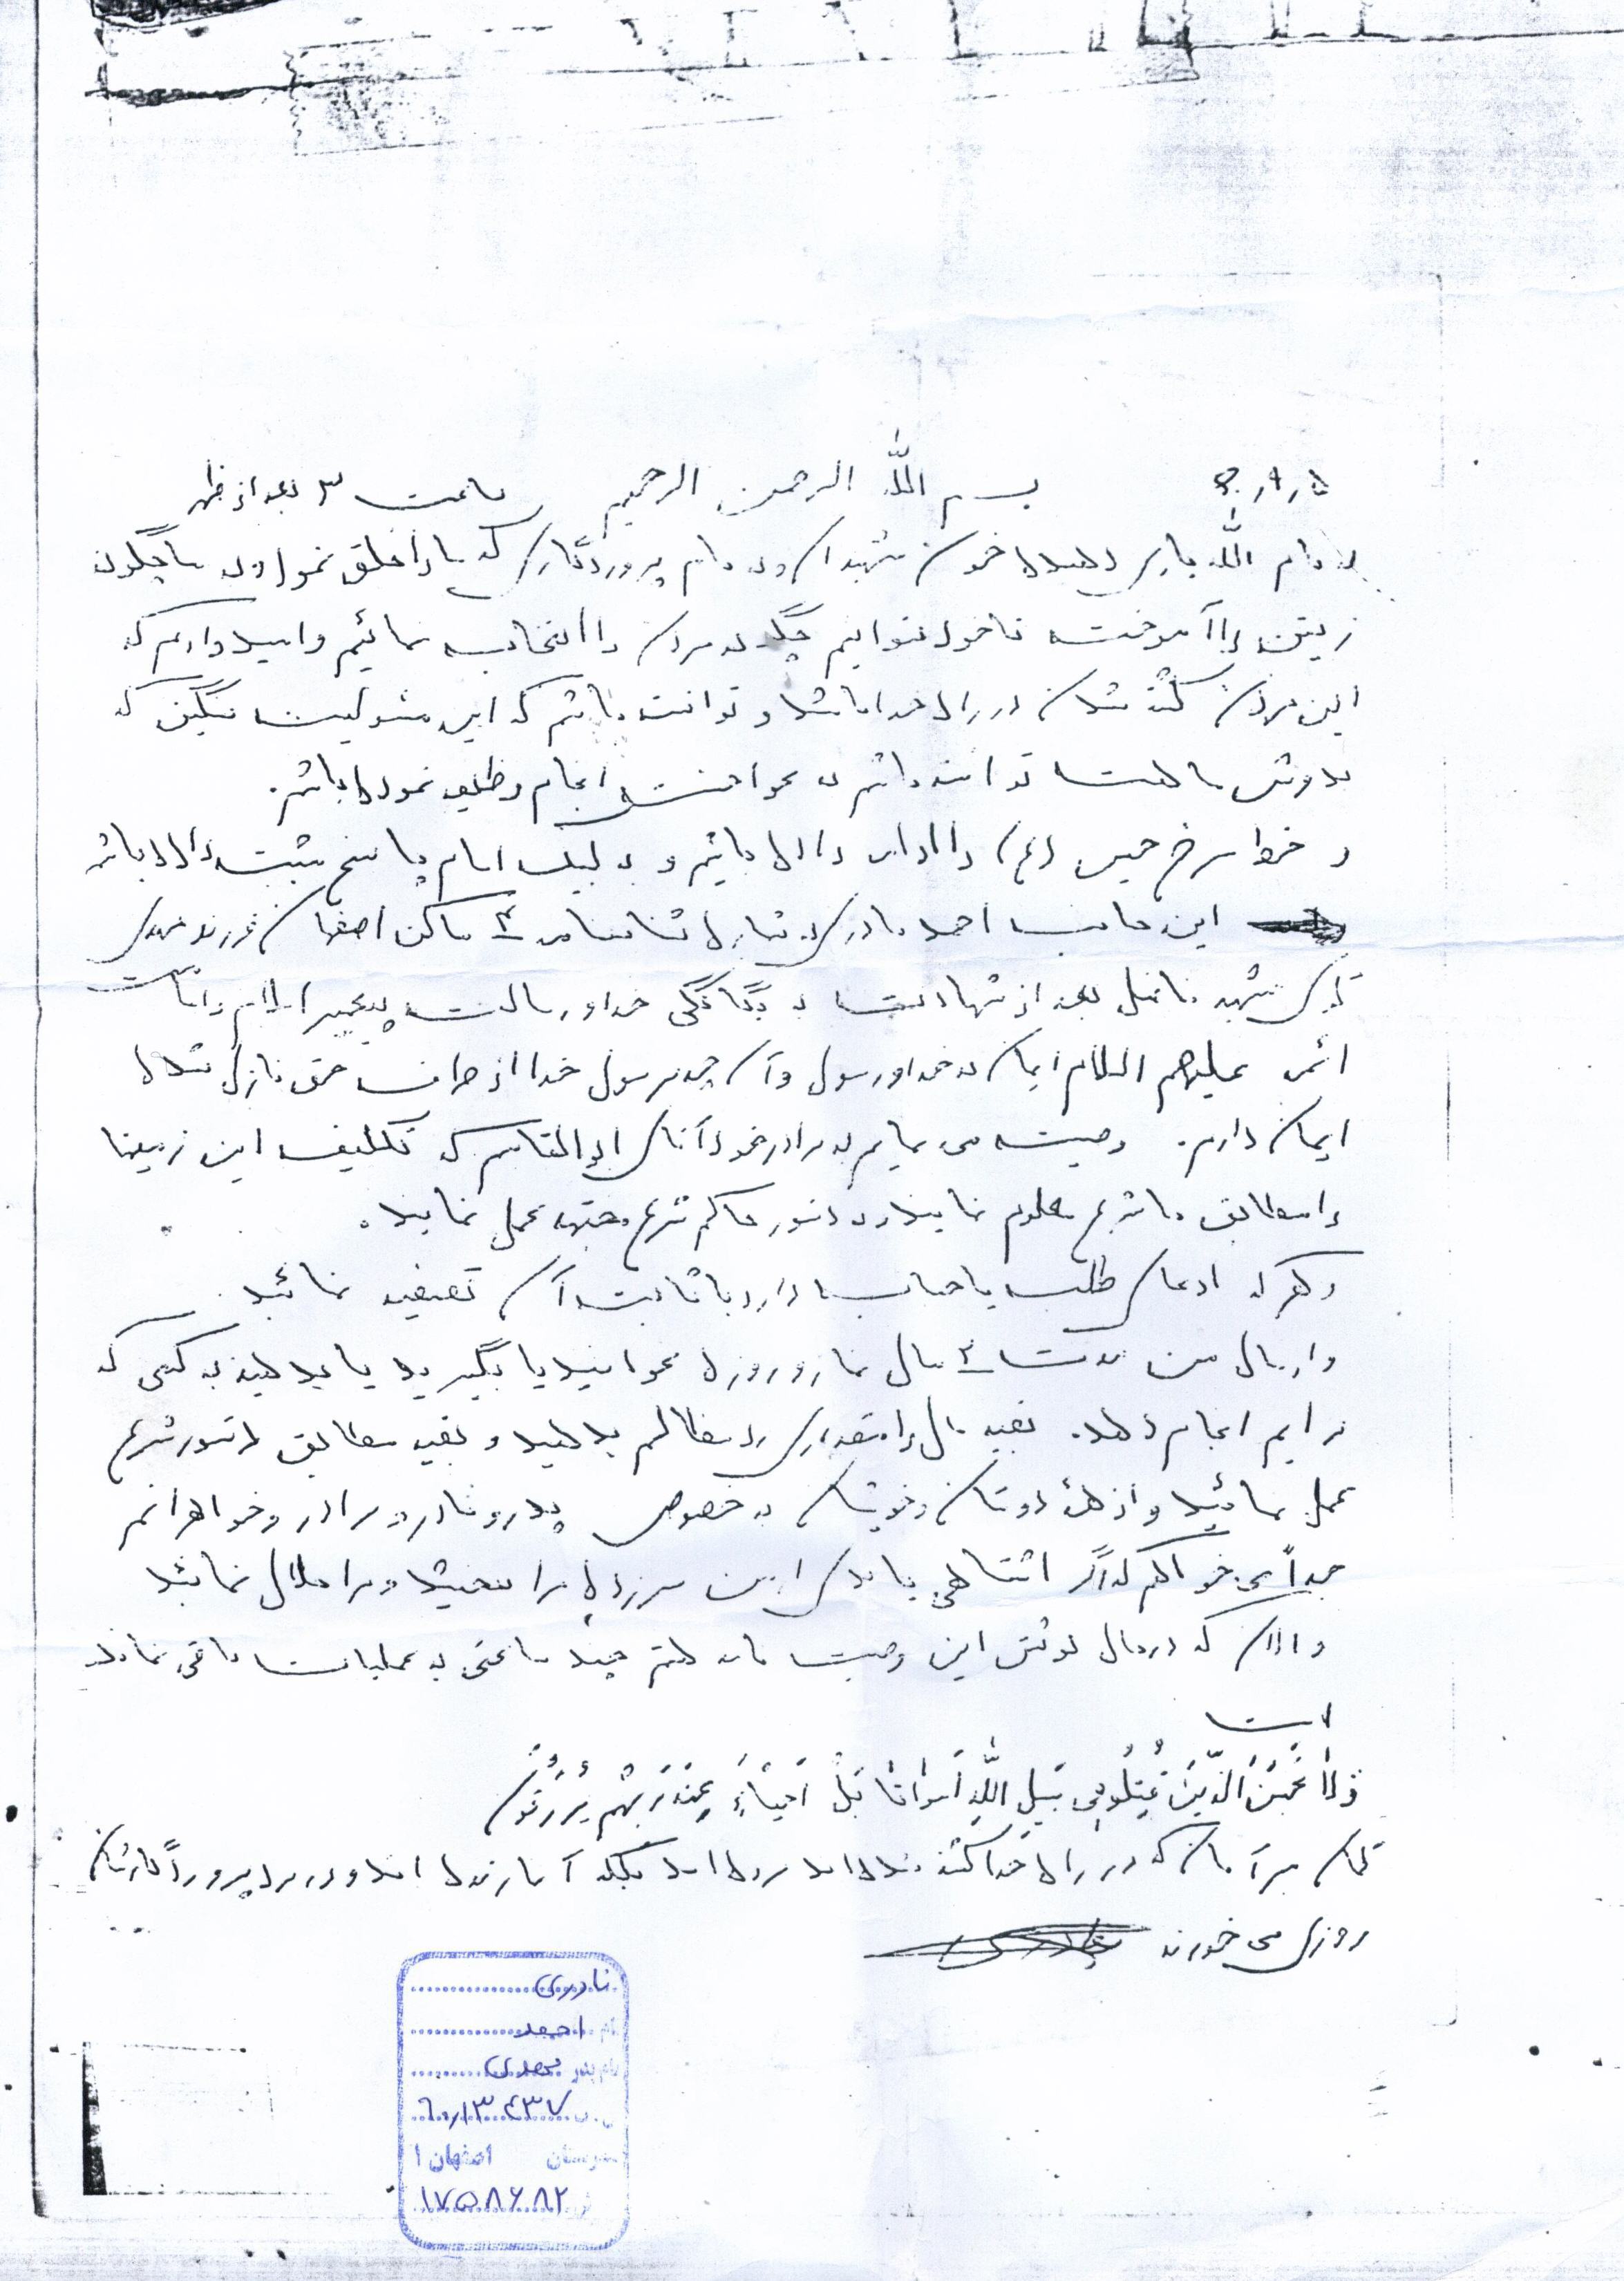 ۶۰٫۹٫۵ بسم الله الرحمن الرحیم ساعت ۳ بعد از ظهر
بنام الله یاری دهنده خون شهدا و بنام پروردگاری که ما را خلق نمود و به ما چگونه
زیستن را آموخت تا خود بتوانیم چگونه مردن را انتخاب نمائیم و امیدوارم که
این مردن کشته شدن در راه خدا باشد و توانسته باشم که این مسئولیت سنگین که
بدوش ماهست توانسته باشم به نحو احسنت انجام وظیفه نموده باشم.
و خط سرخ حسین (ع) را ادامه داده باشم و به لبیک امام پاسخ مثبت داده باشم
این جانب احمد نادری به شماره شناسنامه ساکن اصفهان فرزند مهدی
شهید بعد از شهادت به یگانگی خدا و رسالت پیغمبر اسلام و امامت
ائمه علیهم السلام ایمان به خدا و رسول و آن چه بر رسول خدا از طرف حق نازل شده
ایمان دارم. وصیت می نمایم به برادر خود آقای ابوالقاسم که تکلیف این زمینها
را مطابق با شرع معلوم نمایند و به دستور حاکم شرع مجتهد عمل نمایند.
و هر که ادعای طلب یا حساب دارد با ثابت آن تصفیه نمائید
و از مال من مدت سال نماز و روزه بخوانید یا بگیرید یا بدهید به کسی که
برایم انجام دهد. بقیه مال را مقداری رد مظالم بدهید و بقیه مطابق دستور شرع
عمل نمائید و از همه دوستان و خویشان به خصوص پدر و مادر و برادر و خواهرانم
جداً می خواهم که اگر اشتباهی یا بدی از من سرزده مرا ببخشید و مرا حلال نمائید
و الان که در حال نوشتن این وصیت نامه هستم چند ساعتی به عملیات باقی نمانده
است
وَلا تَحْسَبَنَّ الَّذینَ قُتِلُوا فی سَبیلِ اللهِ اَمْواتًا بَلْ اَحْیاءٌ عِنْدَ رَبِّهِمْ یُرْزَقُونَ
گمان مبر آنان که در راه خدا کشته شده اند مرده اند بلکه آنها زنده اند و در نزد پروردگارشان
روزی می خورند
نادری
نام احمد
نام پدر مهدی
۶۰٫۱۳۰۴۳۷
شهرستان اصفهان ۱
۱۷۵۸۶۸۲